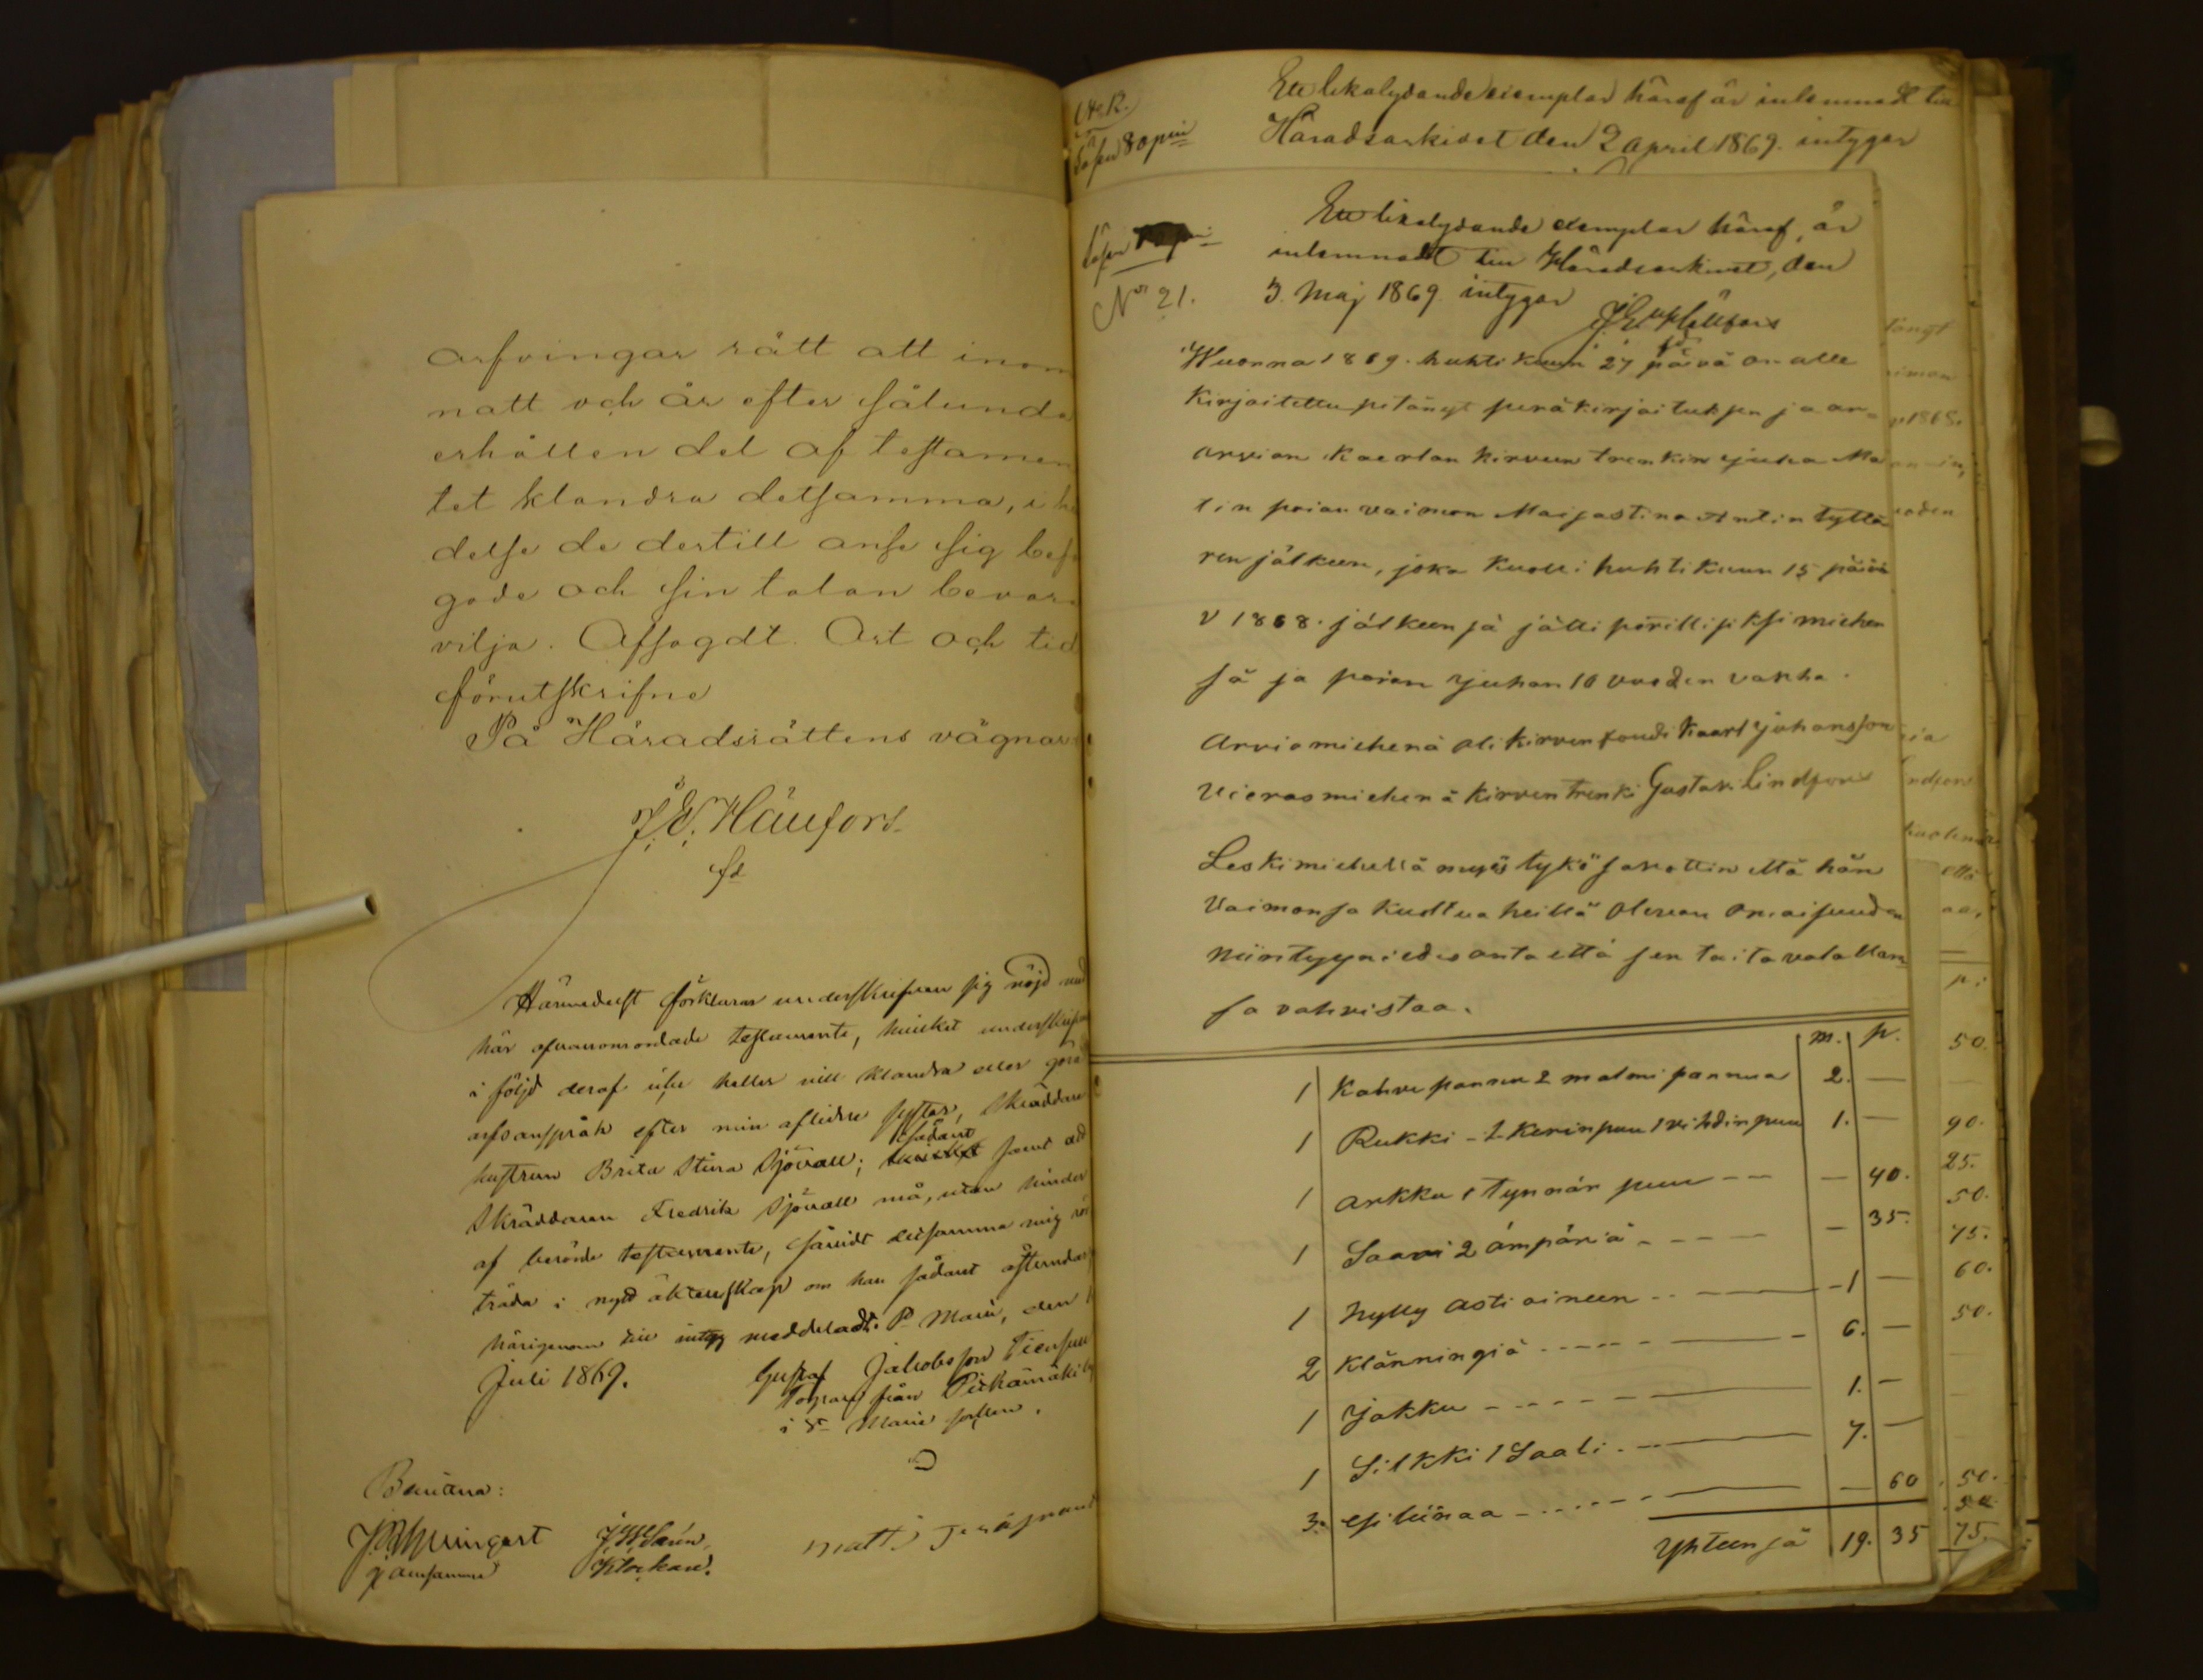 arfvingar rätt att inom
natt och år efter sålunda
erhållen del af testamen
tet klandra detsamma, i hä
delse de dertill anse sig bef
gade och sin talan bevara
vilja. Afsagdt. Ort och tid
förutskrifne
På Häradsrättens vägnar
Härmedelst förklarar undertecknad sig nöjd med
här ofvanomordade testamente, hvilket underskrifven
i följd deraf icke heller vill klandra eller göra
arfsanspråk efter min aflidne syster, Skräddare
sådant
hustrun Brita Stina Sjövall; samt att
Skräddaren Fredrik Sjövall må, utan hinder
af berörde testamente, såvidt detsamma mig rör
träda i nytt äktenskap om han sådant åstundar
härigenom till intyg meddeladt. St Marie, den
Juli 1869.
Gustaf Jakobsson Tiensuu
Torpare från Piikamäki by
i St Marie socken.
Bevittna:
Klockare.
Matti
Lösen 80 pni
Ett likalydande exemplar häraf är inlemnadt till
Häradsarkivet den 2 April 1869. intygar
Lösen
No 21.
Ett likalydande exemplar häraf, är
inlemnadt till Häradsarkivet, den
3. Maj 1869. intygar
Wuonna 1869. huhtikuun 27 päivä on alle
kirjoitettu pitänyt peräkirjoituksen ja ar-
arvion Kaerlan kirveen trenkin Juha Ma
tin poian vaimon Maijastina Antin tyttä
ren jälkeen, joka kuoli huhtikuun 15 päivä
v 1868. jälkeensä jätti perillisiksi miehen
sä ja poian Juhan 10 vuoden vanha.
Arviomiehenä oli kirven foudi Kaarl Johansson
Vierasmiehenä kirven trenki Gustav. Lindfors
Leskimiehellä myös tykö sanottin että hän
Vaimonsa kuoltua heillä olevan omaisuuden
niin tyyni edes anta että sen taita valallan
sa vahvistaa.
m. p.
1 Kahve pannu 2 malmi pannua 2. —
1 Rukki - 1 Kerinpuu 1 vihdinpuu 1. —
1 arkku 1 tynnär puu — — — 40.
1 Saavi 2 ämpäriä - - - - — 35.
1 hylly asti aineen - - — 1 —
2 Klänningiä - - - - — 6. —
1 Jakku - - - - — 1. —
1 Silkki 1 Saali - — 7. —
3. esiliinaa - - - - — — 60
Yhteensä 19. 35
50.
90.
25.
50.
75.
60.
50.
50.
75.